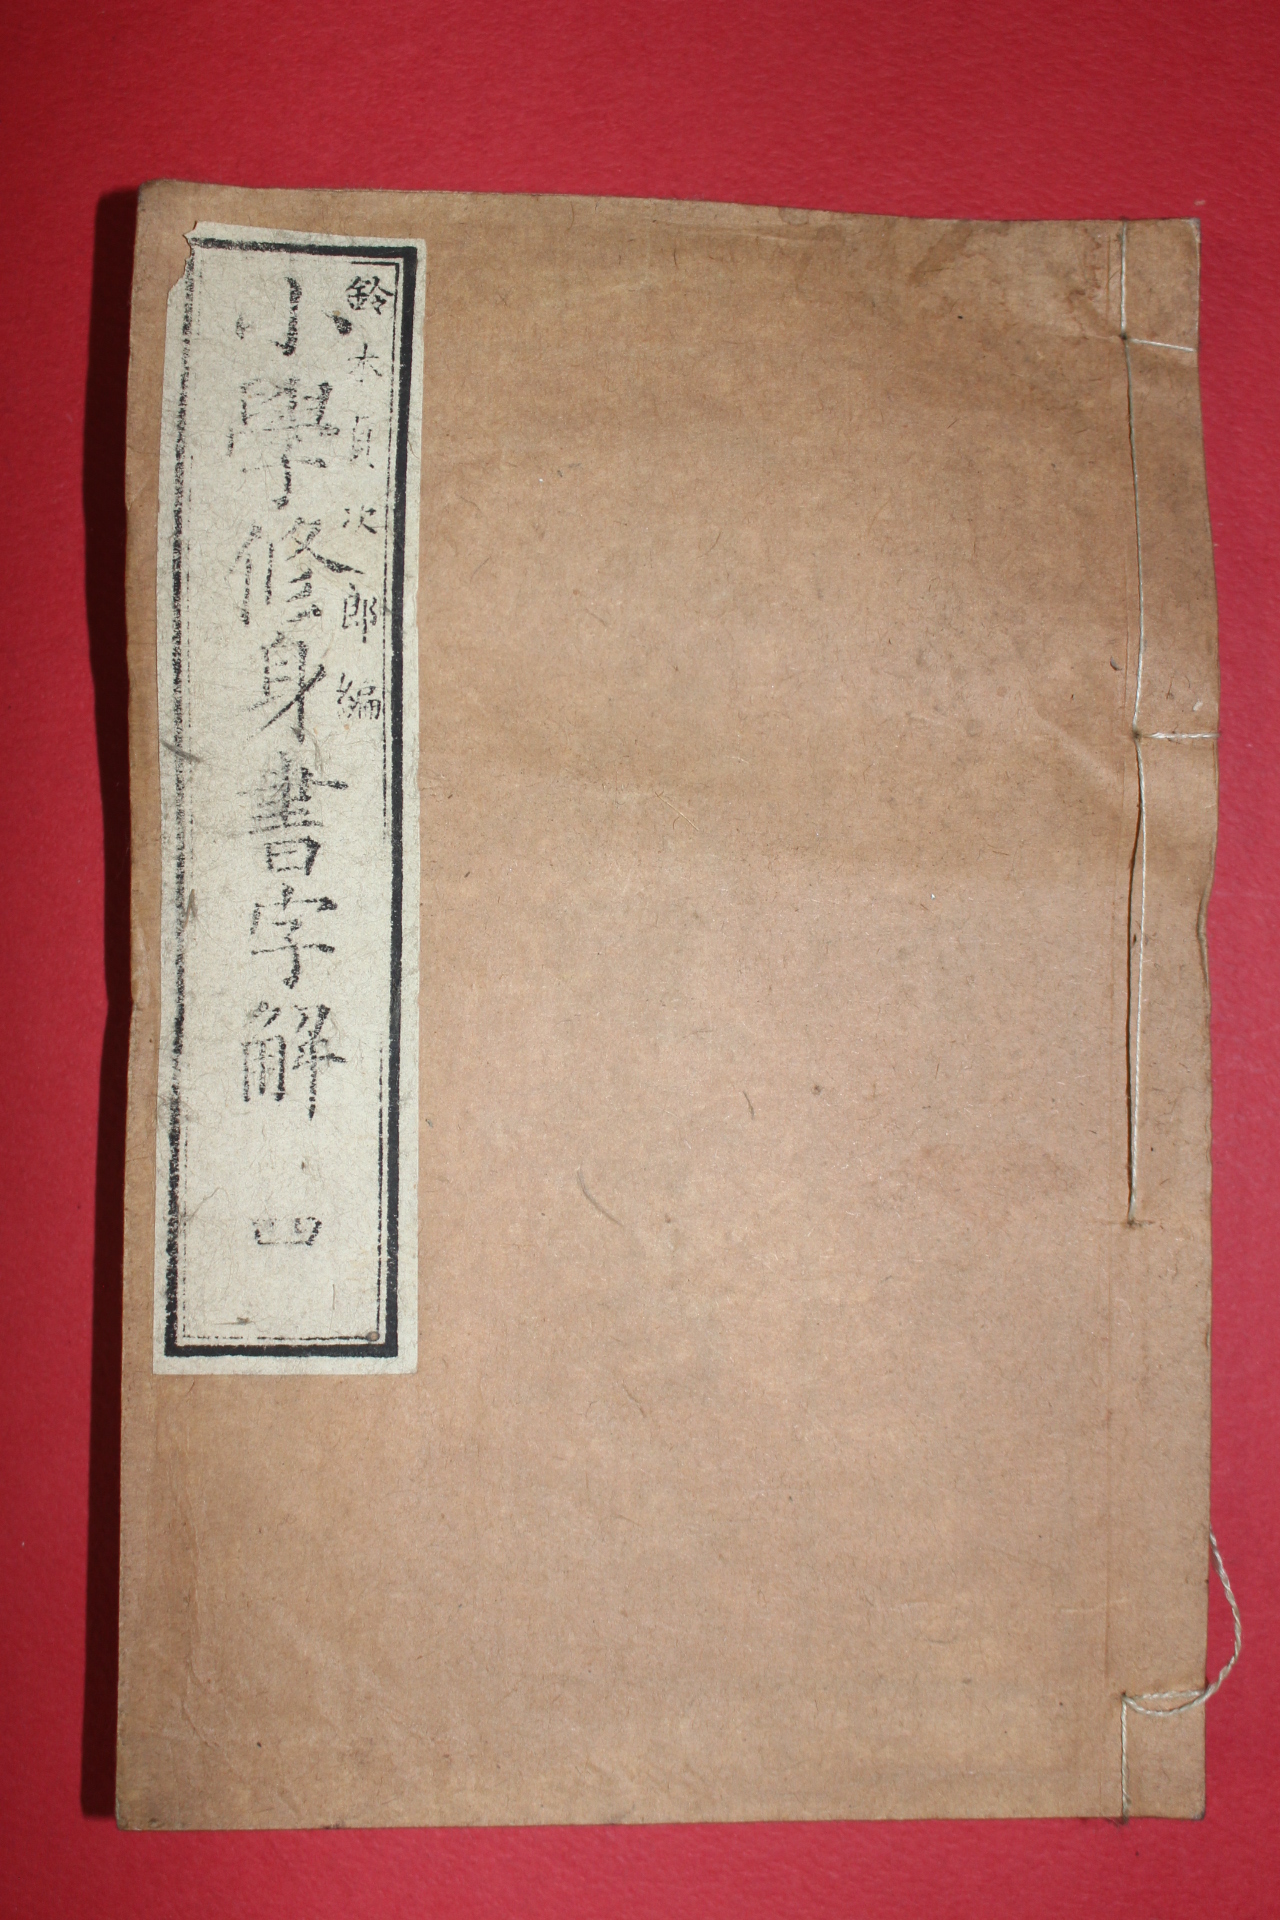 鈴木貞次郎編
小學修身書字解 四